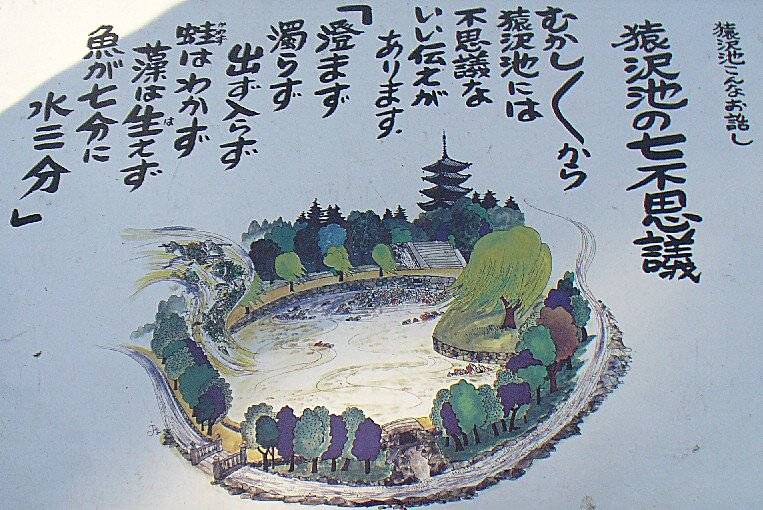 猿沢池こんなお話し
猿沢池の七不思議
むかし〱から
猿沢池には
不思議な
いい伝えが
あります.
「澄まず
濁らず
出ず入らず
蛙はわかず
かえる
藻は生えず
は
魚が七分に
水三分」